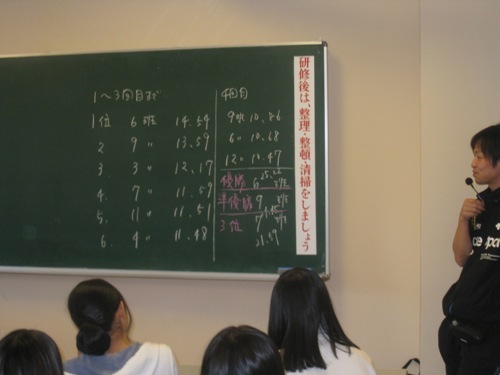 1〜3回目まで
1位 6班 14.54
2 9〃 13.59
3 3〃 12.17
4 7〃 11.59
5 11〃 11.51
6 4〃 11.48
4回目
9班 10.86
6〃 10.68
12〃 10.47
優勝 6
準優勝 9
3位 7
研修後は、整理・整頓・清掃をしましょう